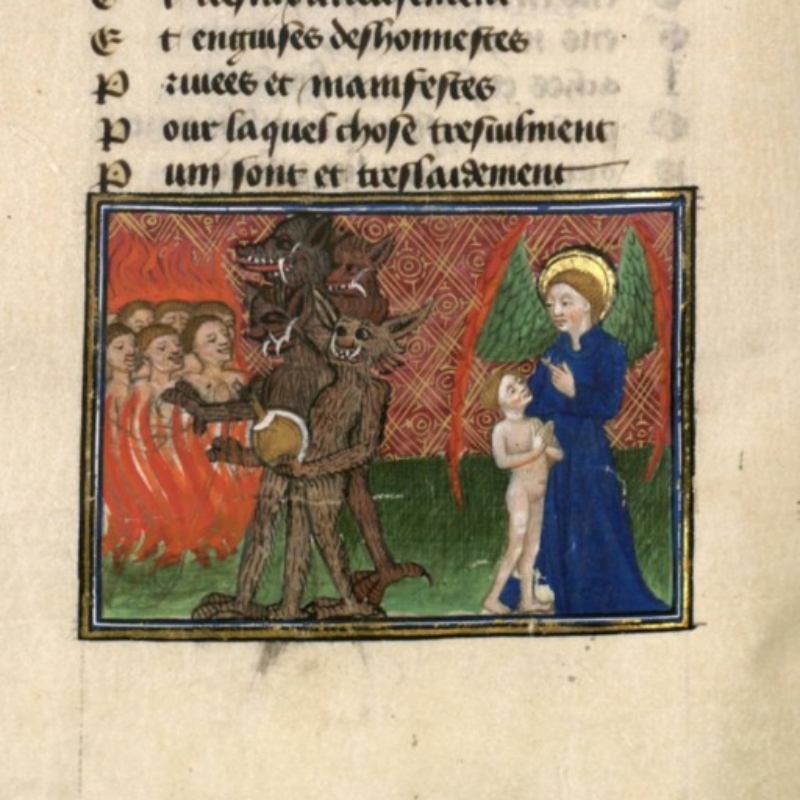 E t enguises deshonnestes
P riuees et manifestes
P our la quel chose tresuilment
P uni sont et treslaidement